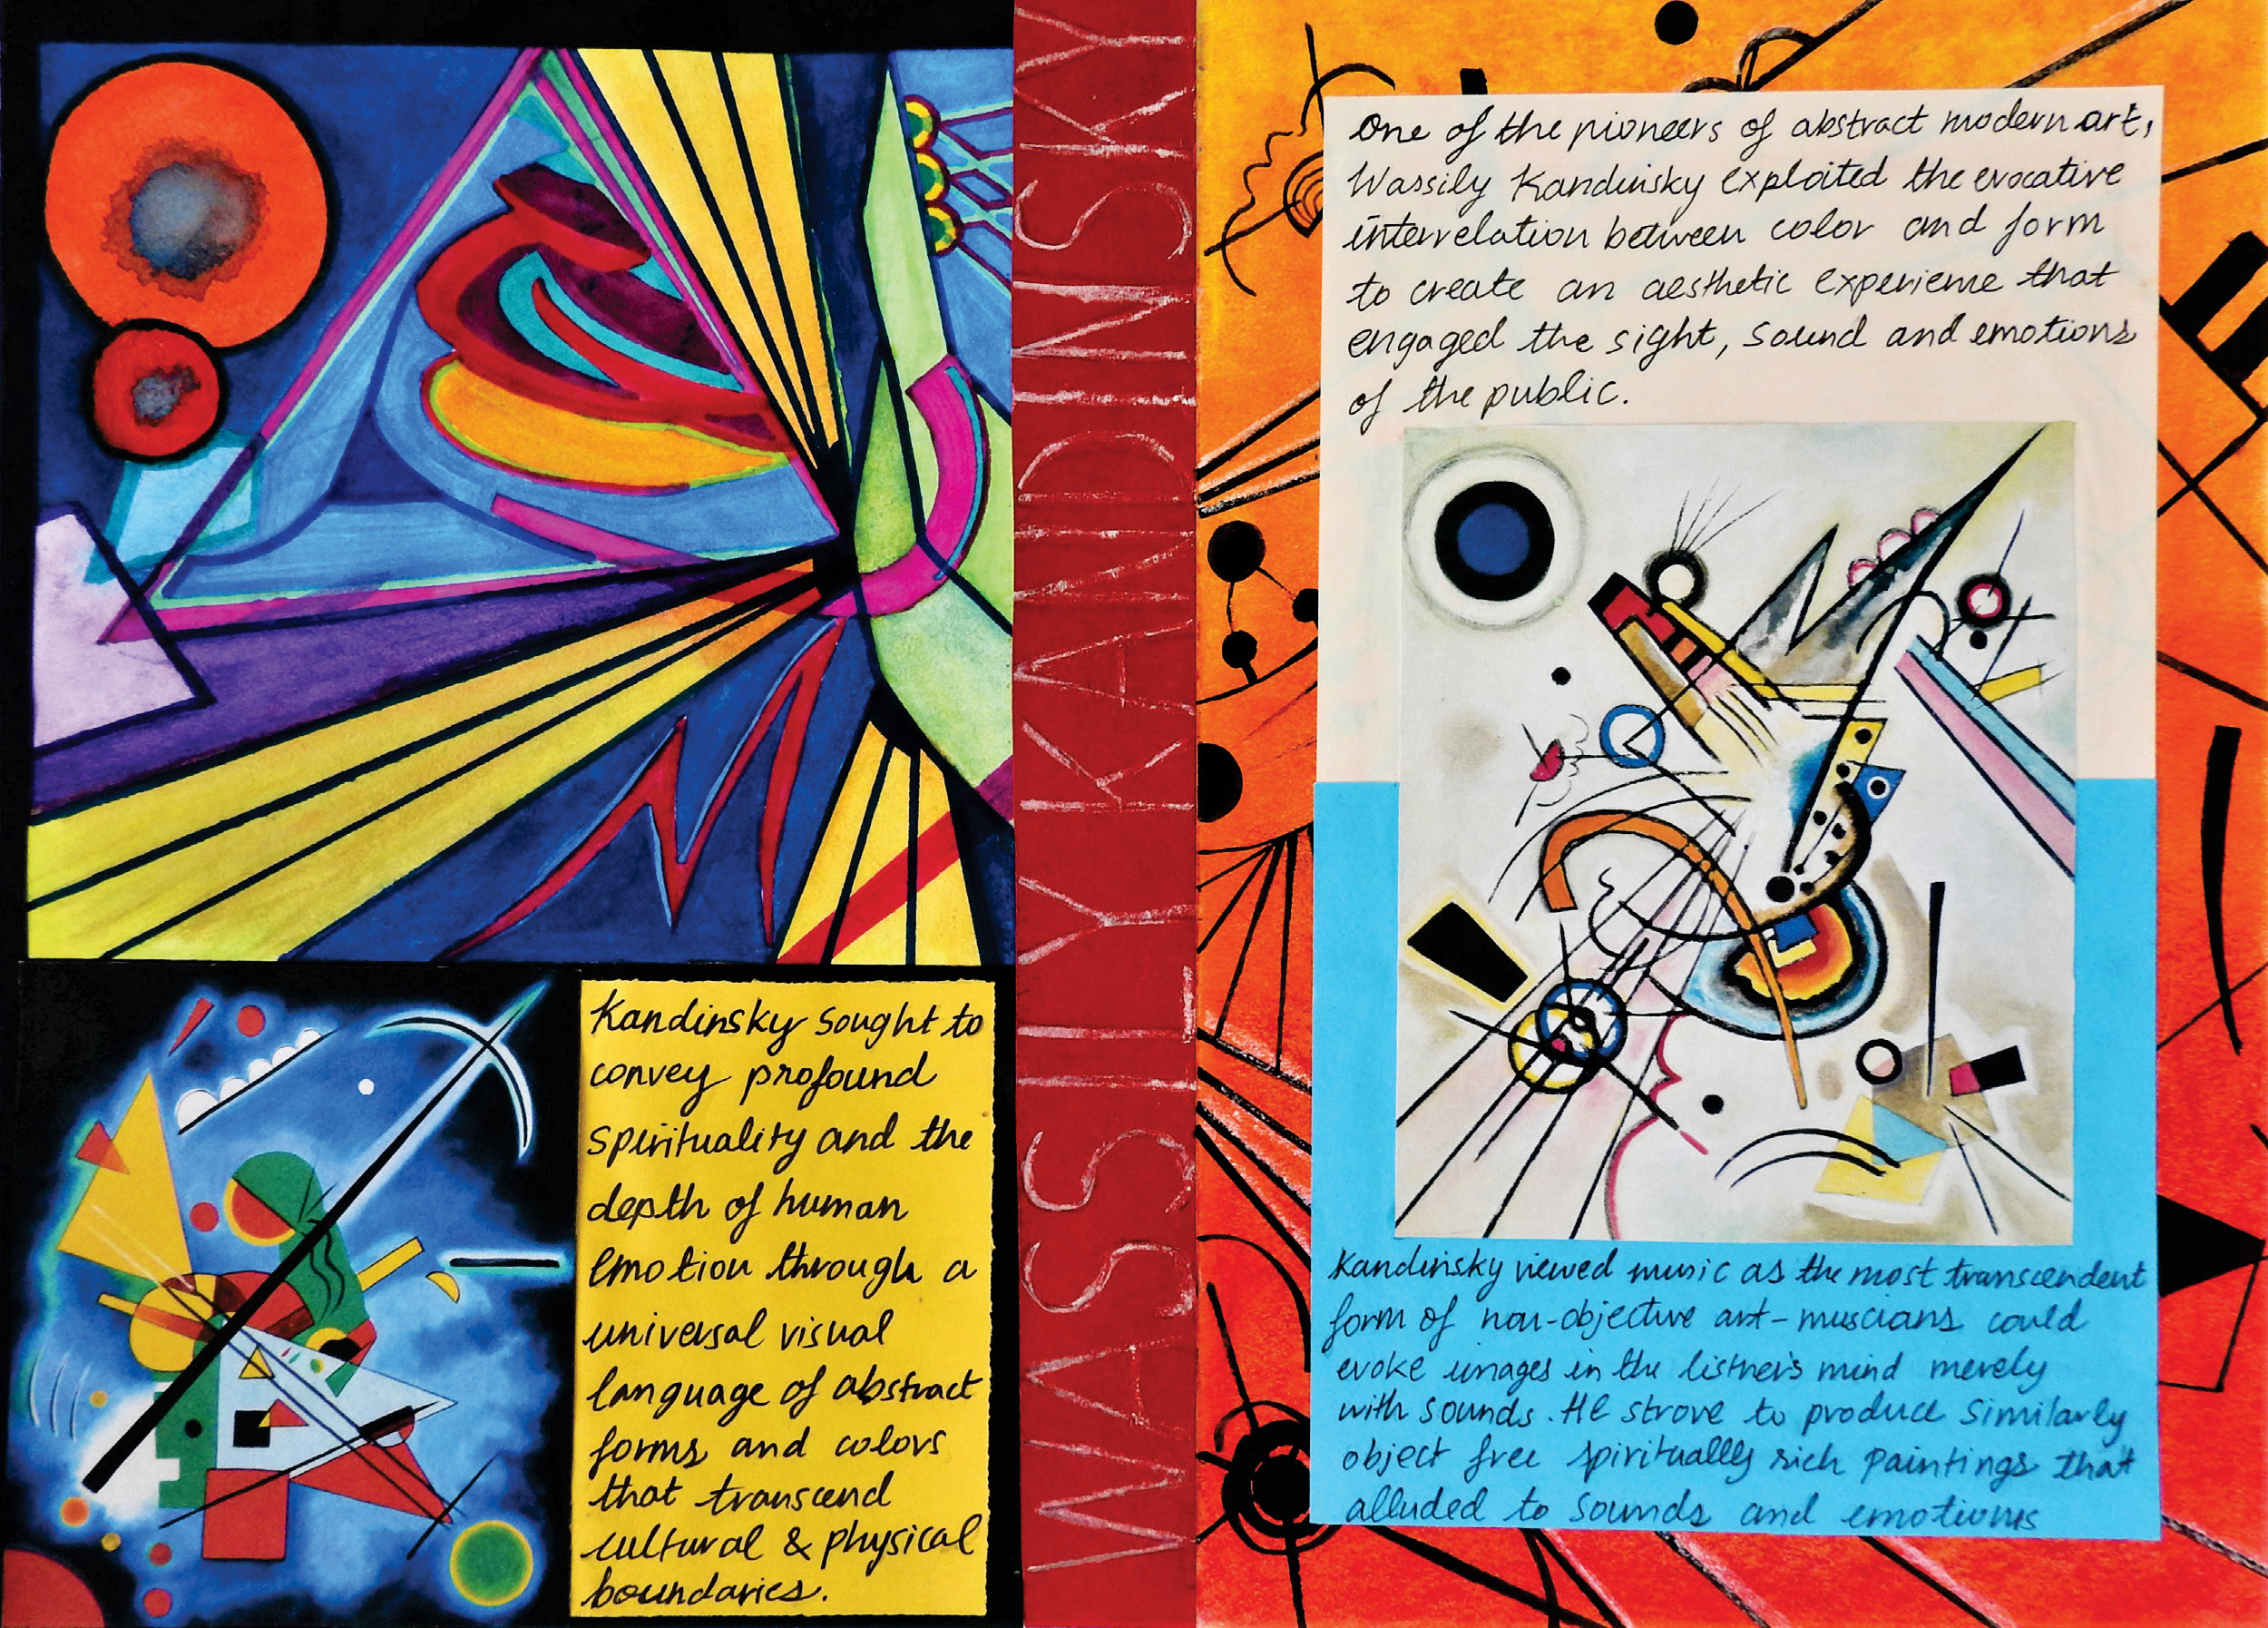 Kandinsky sought to
convey profound
spirituality and the
depth of human
emotion through a
universal visual
language of abstract
forms and colors
that transcend
cultural & physical
boundaries.
WASSILY KANDINSKY
One of the pioneers of abstract modern art,
Wassily Kandinsky exploited the evocative
interrelation between color and form
to create an aesthetic experience that
engaged the sight, sound and emotions
of the public.
Kandinsky viewed music as the most transcendent
form of non-objective art - muscians could
evoke images in the listner's mind merely
with sounds. He strove to produce similarly
object free spiritually rich paintings that
alluded to sounds and emotions